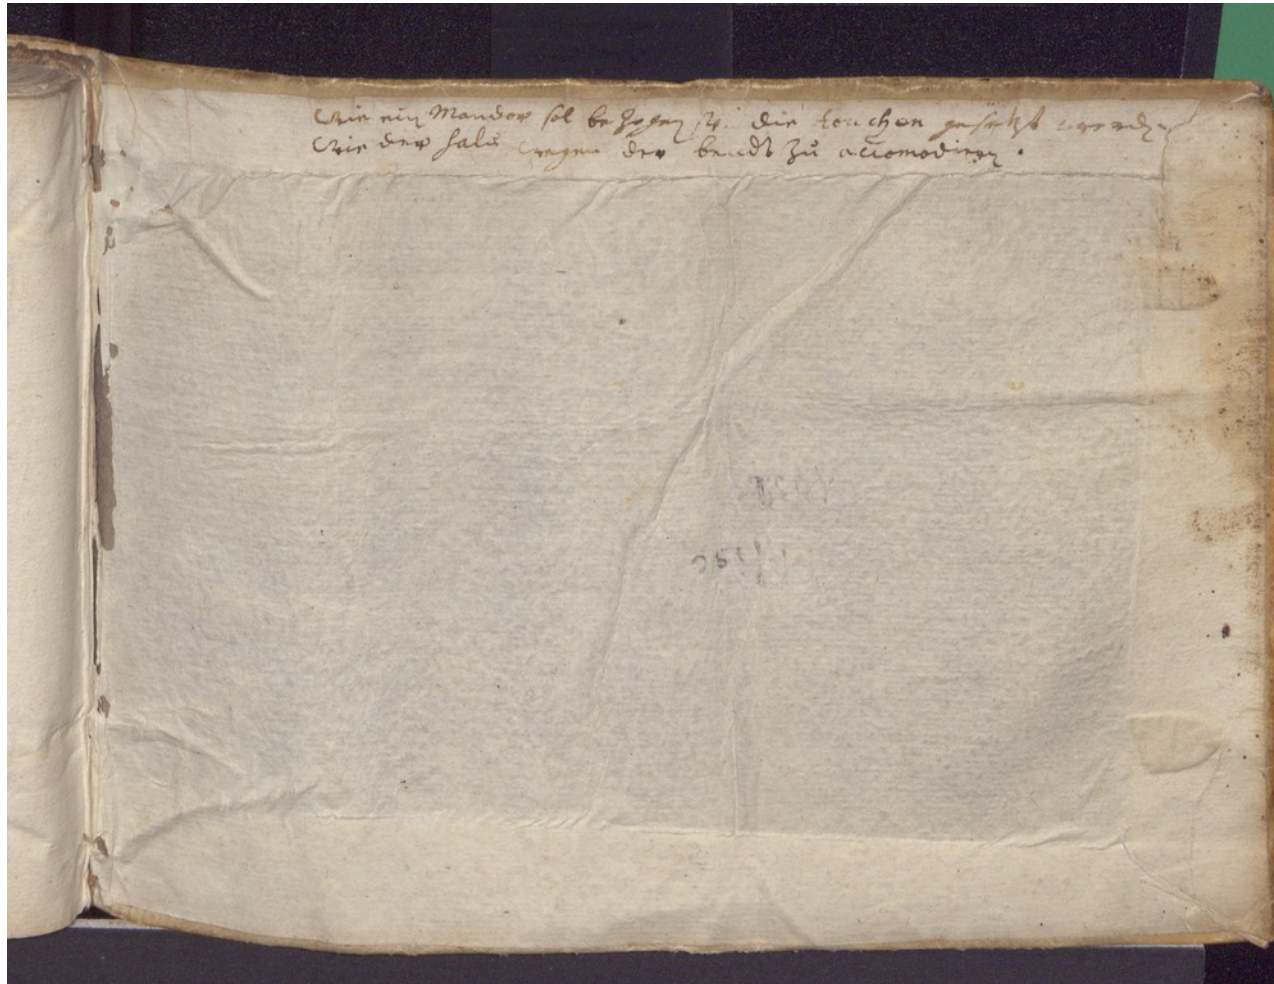 Wie ein Mandor sol bezogen die touchen gesetzt werden
Wie der hals wegen der bendt zu accomodieren .